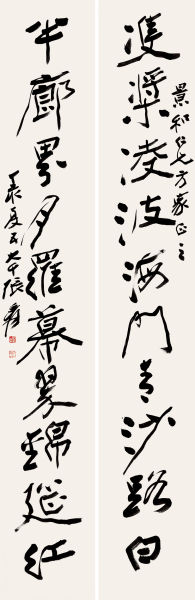 雙槳凌波海門青沙路白
景和仁兄方家正之
半廊界月羅幕翠錦筵紅
夏五大千張爰